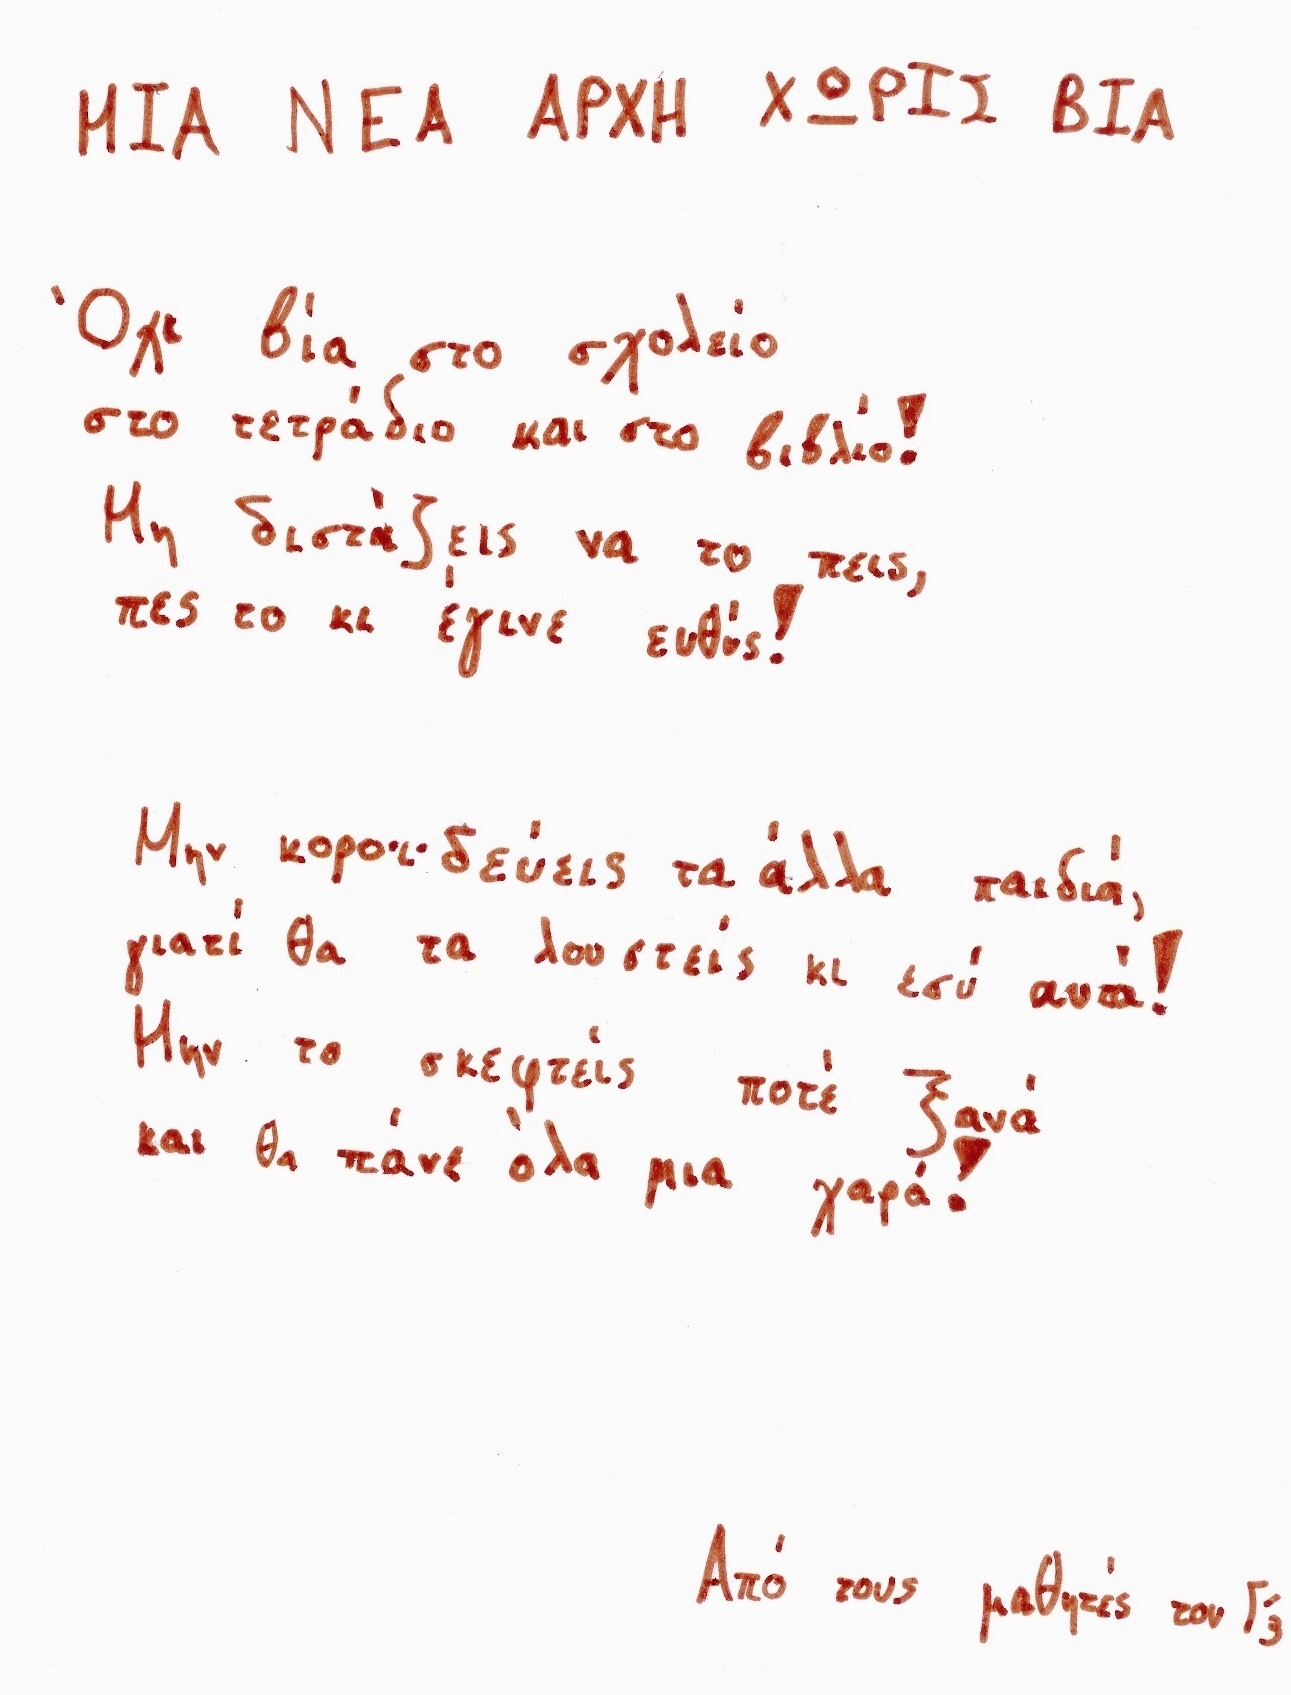 ΜΙΑ ΝΕΑ ΑΡΧΗ ΧΩΡΙΣ ΒΙΑ
Όχι βία στο σχολείο
στο τετράδιο και στο βιβλίο!
Μη διστάζεις να το πεις,
πες το κι έγινε ευθύς!
Μην κοροιδεύεις τα άλλα παιδιά,
γιατί θα τα λουστείς κι εσύ αυτά!
Μην το σκεφτείς ποτέ ξανά
και θα πάνε όλα μια χαρά!
Από τους μαθητές του Γ'3